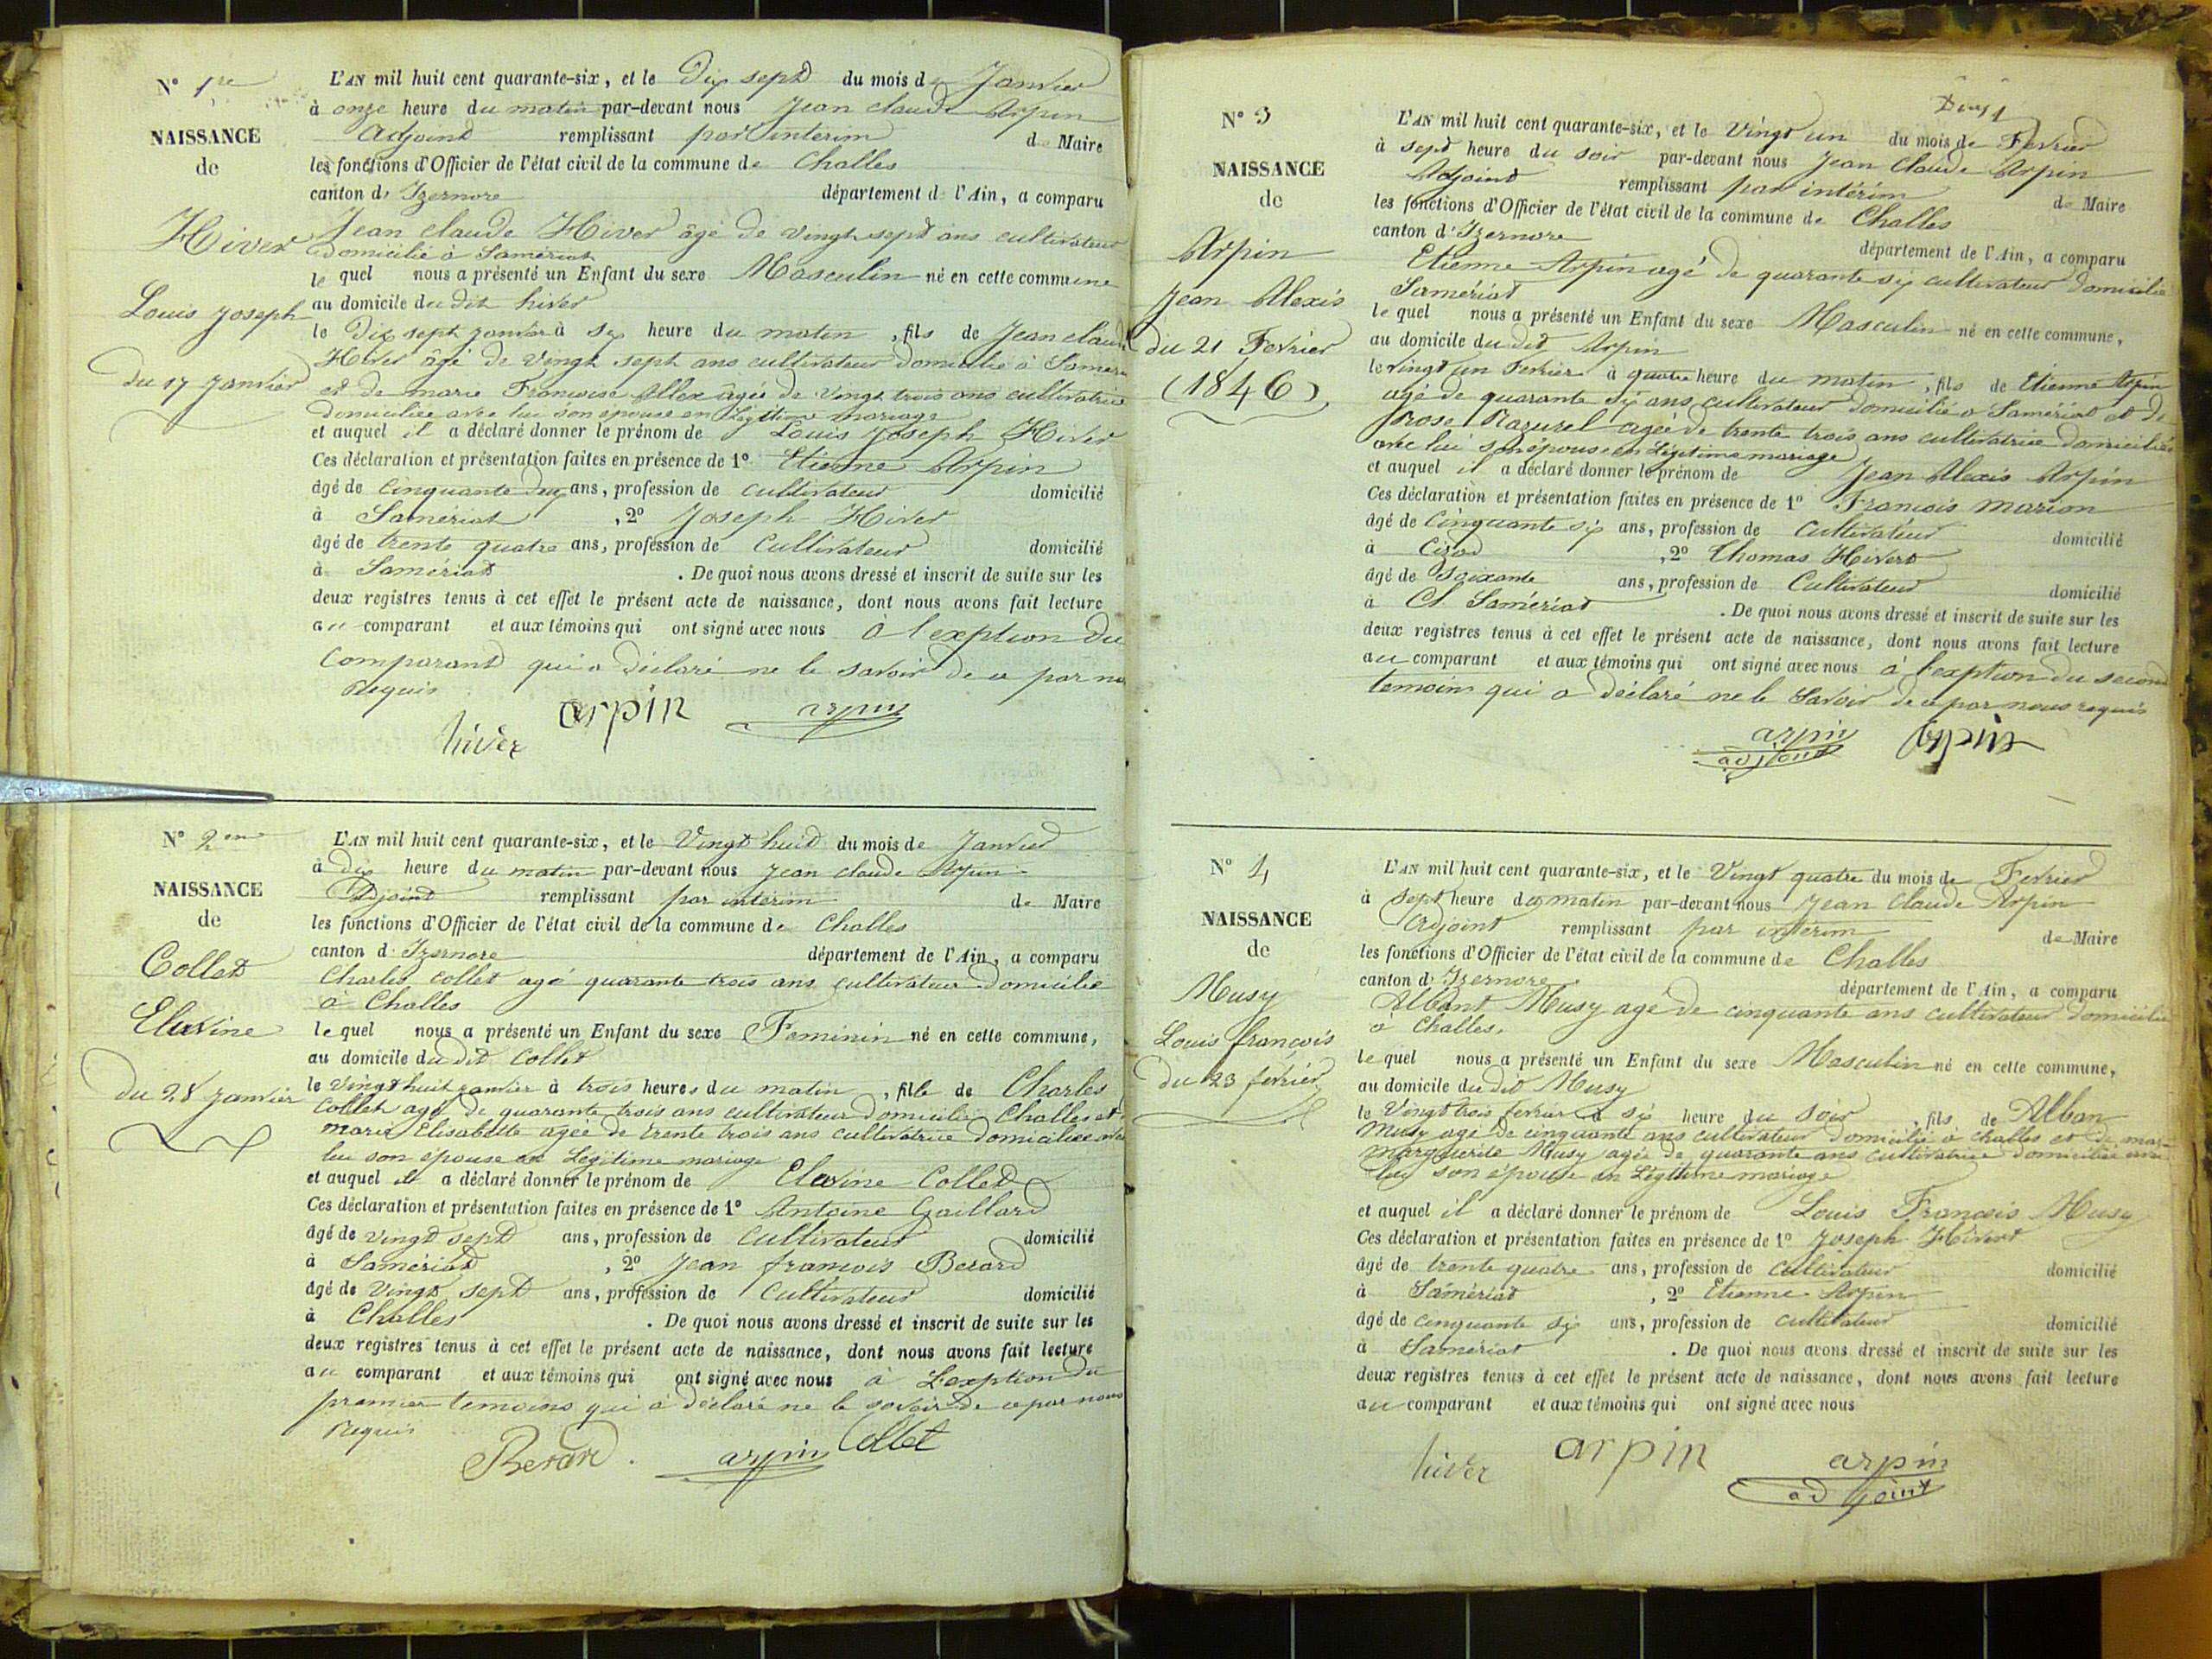 N° 1re
NAISSANCE
de
Hiver
Louis Joseph
du 17 Janvier
L'AN mil huit cent quarante-six, et le Dix sept du mois de Janvier
à onze heure du matin par-devant nous Jean claude Arpin
Adjoint remplissant par interim de Maire
les fonctions d'Officier de l'état civil de la commune de Challes
canton d'Izernore département de l'Ain, a comparu
Jean claude Hiver âgé de vingt sept ans cultivateur
domicilié à Samériat
le quel nous a présenté un Enfant du sexe Masculin né en cette commune
au domicile du dit hiver
le Dix sept janvier à six heure du matin, fils de Jean claude
Hiver âgé de vingt sept ans cultivateur domicilié à Samer
et de marie Francoise Allex âgée de vingt trois ans cultivatrice
domiciliée avec lui son épouse en Légitime mariage
et auquel il a déclaré donner le prénom de Louis Joseph Hiver
Ces déclaration et présentation faites en présence de 1° Etienne Arpin
âgé de cinquante deux ans, profession de cultivateur domicilié
à Samériat, 2° Joseph Hiver
âgé de trente quatre ans, profession de cultivateur domicilié
à Samériat. De quoi nous avons dressé et inscrit de suite sur les
deux registres tenus à cet effet le présent acte de naissance, dont nous avons fait lecture
au comparant et aux témoins qui ont signé avec nous à l'exption du
Comparant qui a déclaré ne le savoir de ce par no
Requis
hiver arpin arpin
N° 2me
NAISSANCE
de
Collet
Elavine
du 28 janvier
L'AN mil huit cent quarante-six, et le Vingt huit du mois de Janvier
à dix heure du matin par-devant nous Jean claude Arpin
Adjoint remplissant par interim de Maire
les fonctions d'Officier de l'état civil de la commune de Challes
canton d'Izernore département de l'Ain, a comparu
Charles collet agé quarante trois ans cultivateur domicilié
à Challes
le quel nous a présenté un Enfant du sexe Feminin né en cette commune,
au domicile du dit Collet
le vingt huit janvier à trois heures du matin, fille de Charles
Collet agé de quarante trois ans cultivateur domicilié Challes et
marie Elisabette agée de trente trois ans cultivatrice domiciliée avec
lui son épouse en Légitime mariage
et auquel il a déclaré donner le prénom de Elavine Collet
Ces déclaration et présentation faites en présence de 1° Antoine Gaillard
âgé de vingt sept ans, profession de cultivateur domicilié
à Samériat, 2° Jean francois Berard
âgé de Vingt sept ans, profession de Cultivateur domicilié
à Challes. De quoi nous avons dressé et inscrit de suite sur les
deux registres tenus à cet effet le présent acte de naissance, dont nous avons fait lecture
au comparant et aux témoins qui ont signé avec nous à L'exption du
premier temoins qui à déclaré ne le savoir de ce par nous
Requis
Berard. arpin Collet
N° 3
NAISSANCE
de
Arpin
Jean Alexis
du 21 Fevrier
(1846)
L'AN mil huit cent quarante-six, et le Vingt un du mois de Fevrier
à sept heure du soir par-devant nous Jean Claude Arpin
Adjoint remplissant par intérim de Maire
les fonctions d'Officier de l'état civil de la commune de Challes
canton d'Izernore département de l'Ain, a comparu
Etienne Arpin agé de quarante six cultivateur domicilié
Samériat
le quel nous a présenté un Enfant du sexe Masculin né en cette commune,
au domicile du dit Arpin
le vingt un Fevrier à quatre heure du matin, fils de Etienne Arpin
agé de quarante six ans cultivateur domicilié à Samériat et de
jrose Nazurel agée de trente trois ans cultivatrice domiciliée
avec lui son épouse en Légitime mariage
et auquel il a déclaré donner le prénom de Jean Alexis Arpin
Ces déclaration et présentation faites en présence de 1° Francois Marion
âgé de Cinquante six ans, profession de cultivateur domicilié
à Cizod, 2° Thomas Hivert
âgé de Soixante ans, profession de Cultivateur domicilié
à Ch Samériat. De quoi nous avons dressé et inscrit de suite sur les
deux registres tenus à cet effet le présent acte de naissance, dont nous avons fait lecture
au comparant et aux témoins qui ont signé avec nous à l'exption du second
temoins qui a déclaré ne le Savoir de ce par nous requis
arpin
adjoint
N° 4
NAISSANCE
de
Musy
Louis françois
du 23 fevrier
L'AN mil huit cent quarante-six, et le Vingt quatre du mois de Fevrier
à Sept heure du matin par-devant nous Jean Claude Arpin
Adjoint remplissant par interim de Maire
les fonctions d'Officier de l'état civil de la commune de Challes
canton d'Izernore département de l'Ain, a comparu
Albant Musy agé de cinquante ans cultivateur domicilié
à Challes.
le quel nous a présenté un Enfant du sexe Masculin né en cette commune,
au domicile du dit Musy
le Vingt trois fevrier à six heure du soir, fils de Alban
Musy agé de cinquante ans cultivateur domicilié à challes et de mar
marguerite Musy agée de quarante ans cultivatrice domiciliée avec
luy son épouse en Légitime mariage
et auquel il a déclaré donner le prénom de Louis Francois Musy
Ces déclaration et présentation faites en présence de 1° Joseph Hivert
âgé de trente quatre ans, profession de cultivateur domicilié
à Samériat, 2° Etienne Arpin
âgé de cinquante six ans, profession de cultivateur domicilié
à Samériat. De quoi nous avons dressé et inscrit de suite sur les
deux registres tenus à cet effet le présent acte de naissance, dont nous avons fait lecture
au comparant et aux témoins qui ont signé avec nous
hiver arpin arpin
adjoint